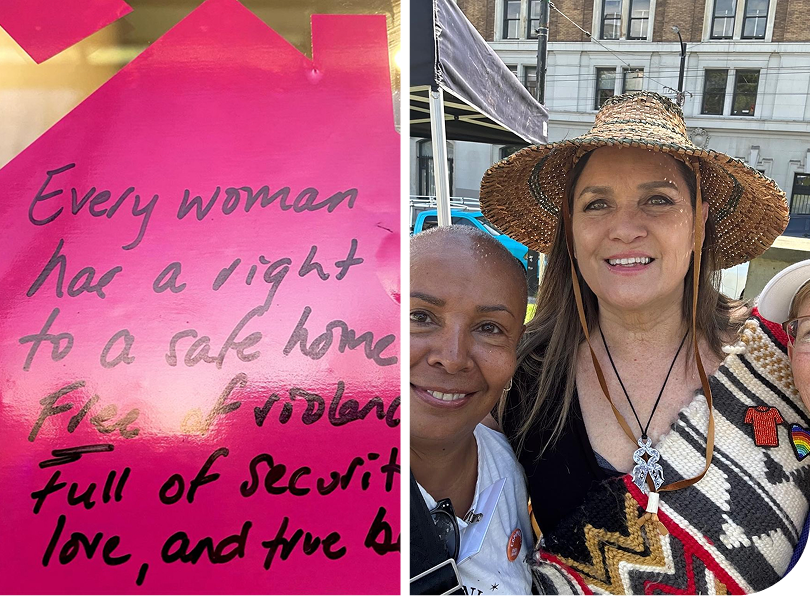 Every woman
has a right
to a safe home
Free of violenc
Full of securit
love, and true b